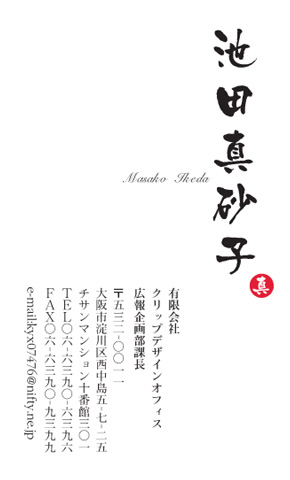 池田真砂子
真
Masako Ikeda
有限会社
クリップデザインオフィス
広報企画部課長
〒五三二-〇〇一一
大阪市淀川区西中島五-七-二五
チサンマンション十番館三〇一
TEL〇六-六三九〇-六三九六
FAX〇六-六三九〇-九三九九
e-mail:kyx07476@nifty.ne.jp